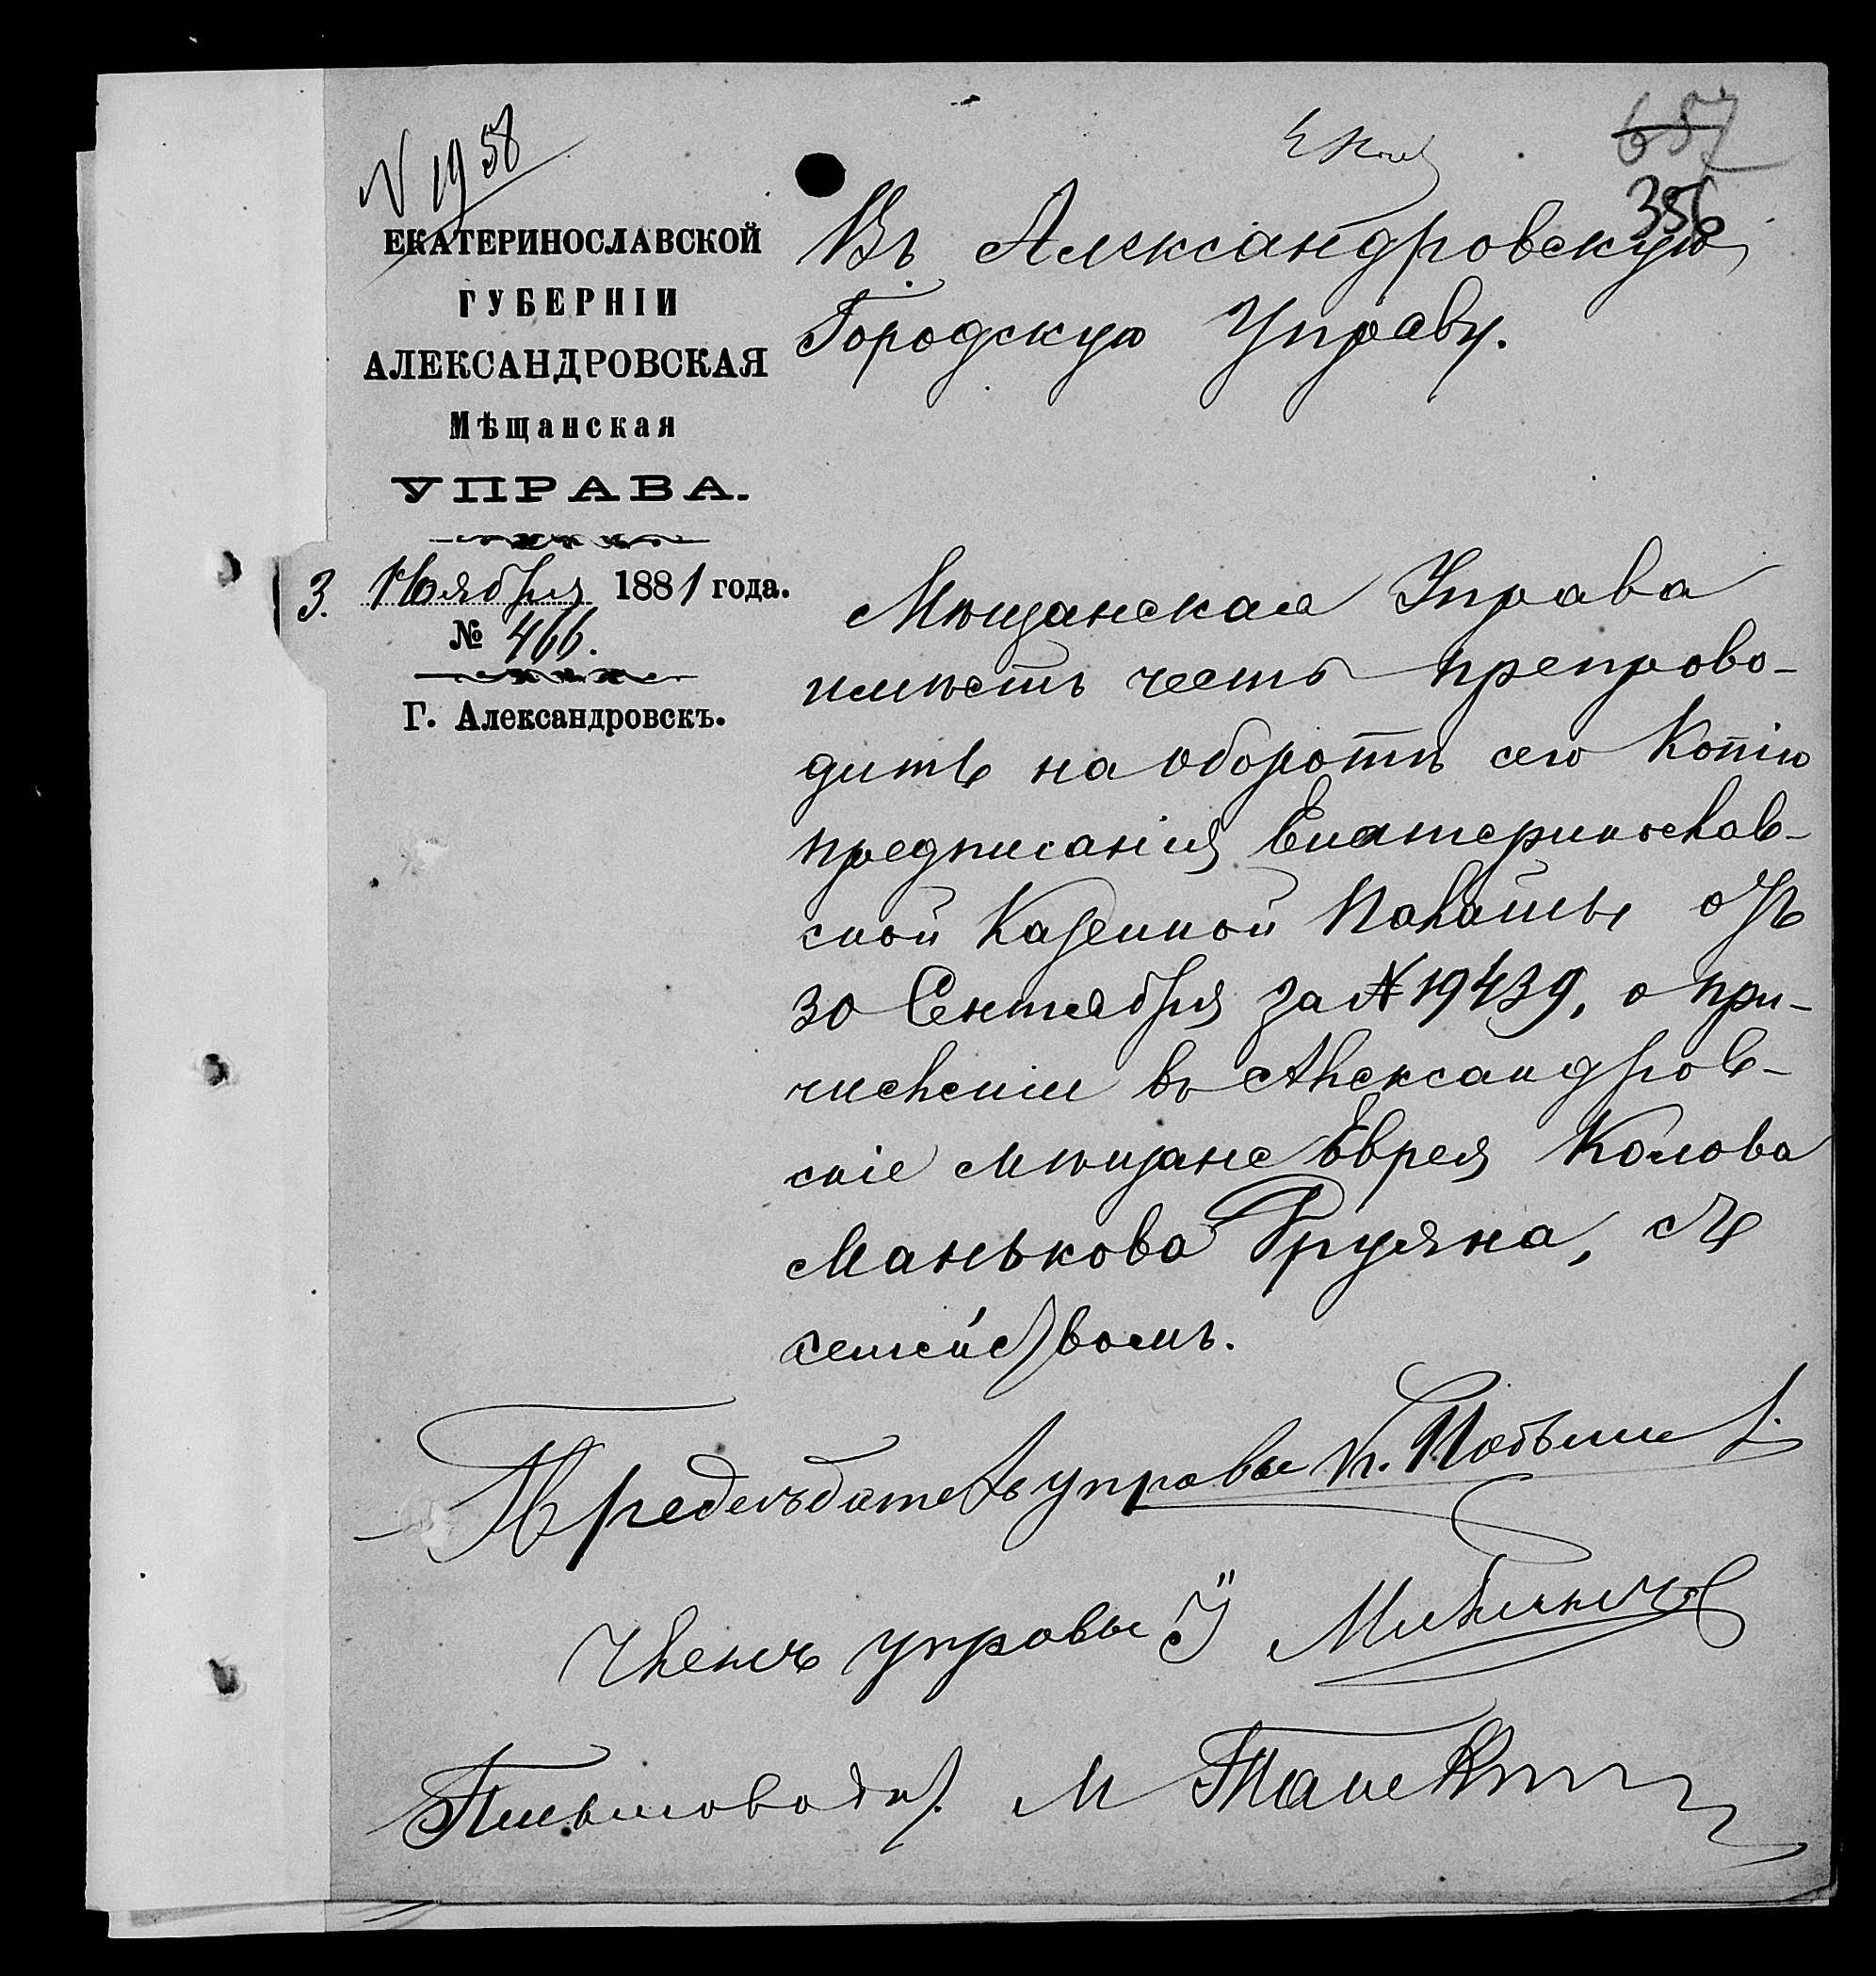 N 1958
657
356
ЕКАТЕРИНОСЛАВСКОЙ
ГУБЕРНІИ
АЛЕКСАНДРОВСКАЯ
Мѣщанская
УПРАВА.
3. Ноября 1881 года.
№ 466.
Г. Александровскъ.
Въ Александровскую
Городскую Управу.
Мѣщанская Управа
имѣетъ честь препрово-
дить на оборотѣ сего Копію
предписанія Екатеринослав-
ской Казенной Палаты отъ
30 Сентября за № 19439, о при-
численіи въ Александров-
скіе мѣщане Еврея
Манькова съ
семействомъ.
Председатель управы
Членъ управы
Письмовод.